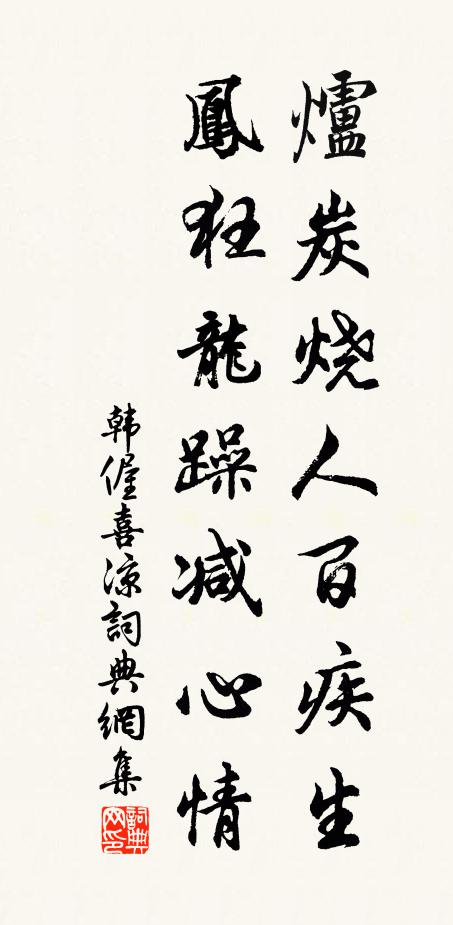 爐炭烧人百疾生
鳳狂龍躁减心情
韩偓喜凉詞典網集
詞典网印